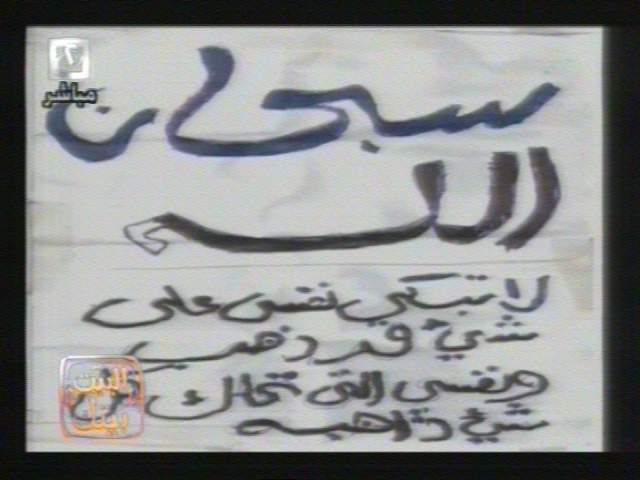 ٢
مباشر
سبحان
الله
لا تبكي نفسى على
شيء قد ذهب
ونفسى التى تملك كل
شيء ذاهبه
البيت
بيتك